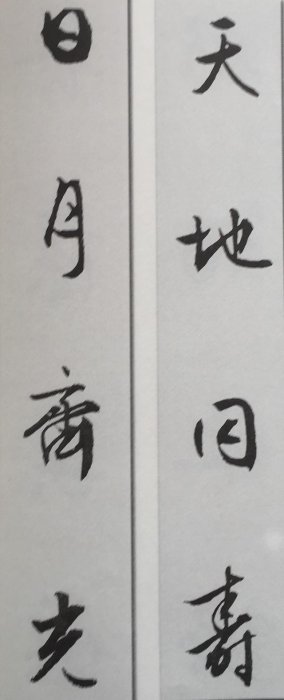 天地同壽
日月齊光